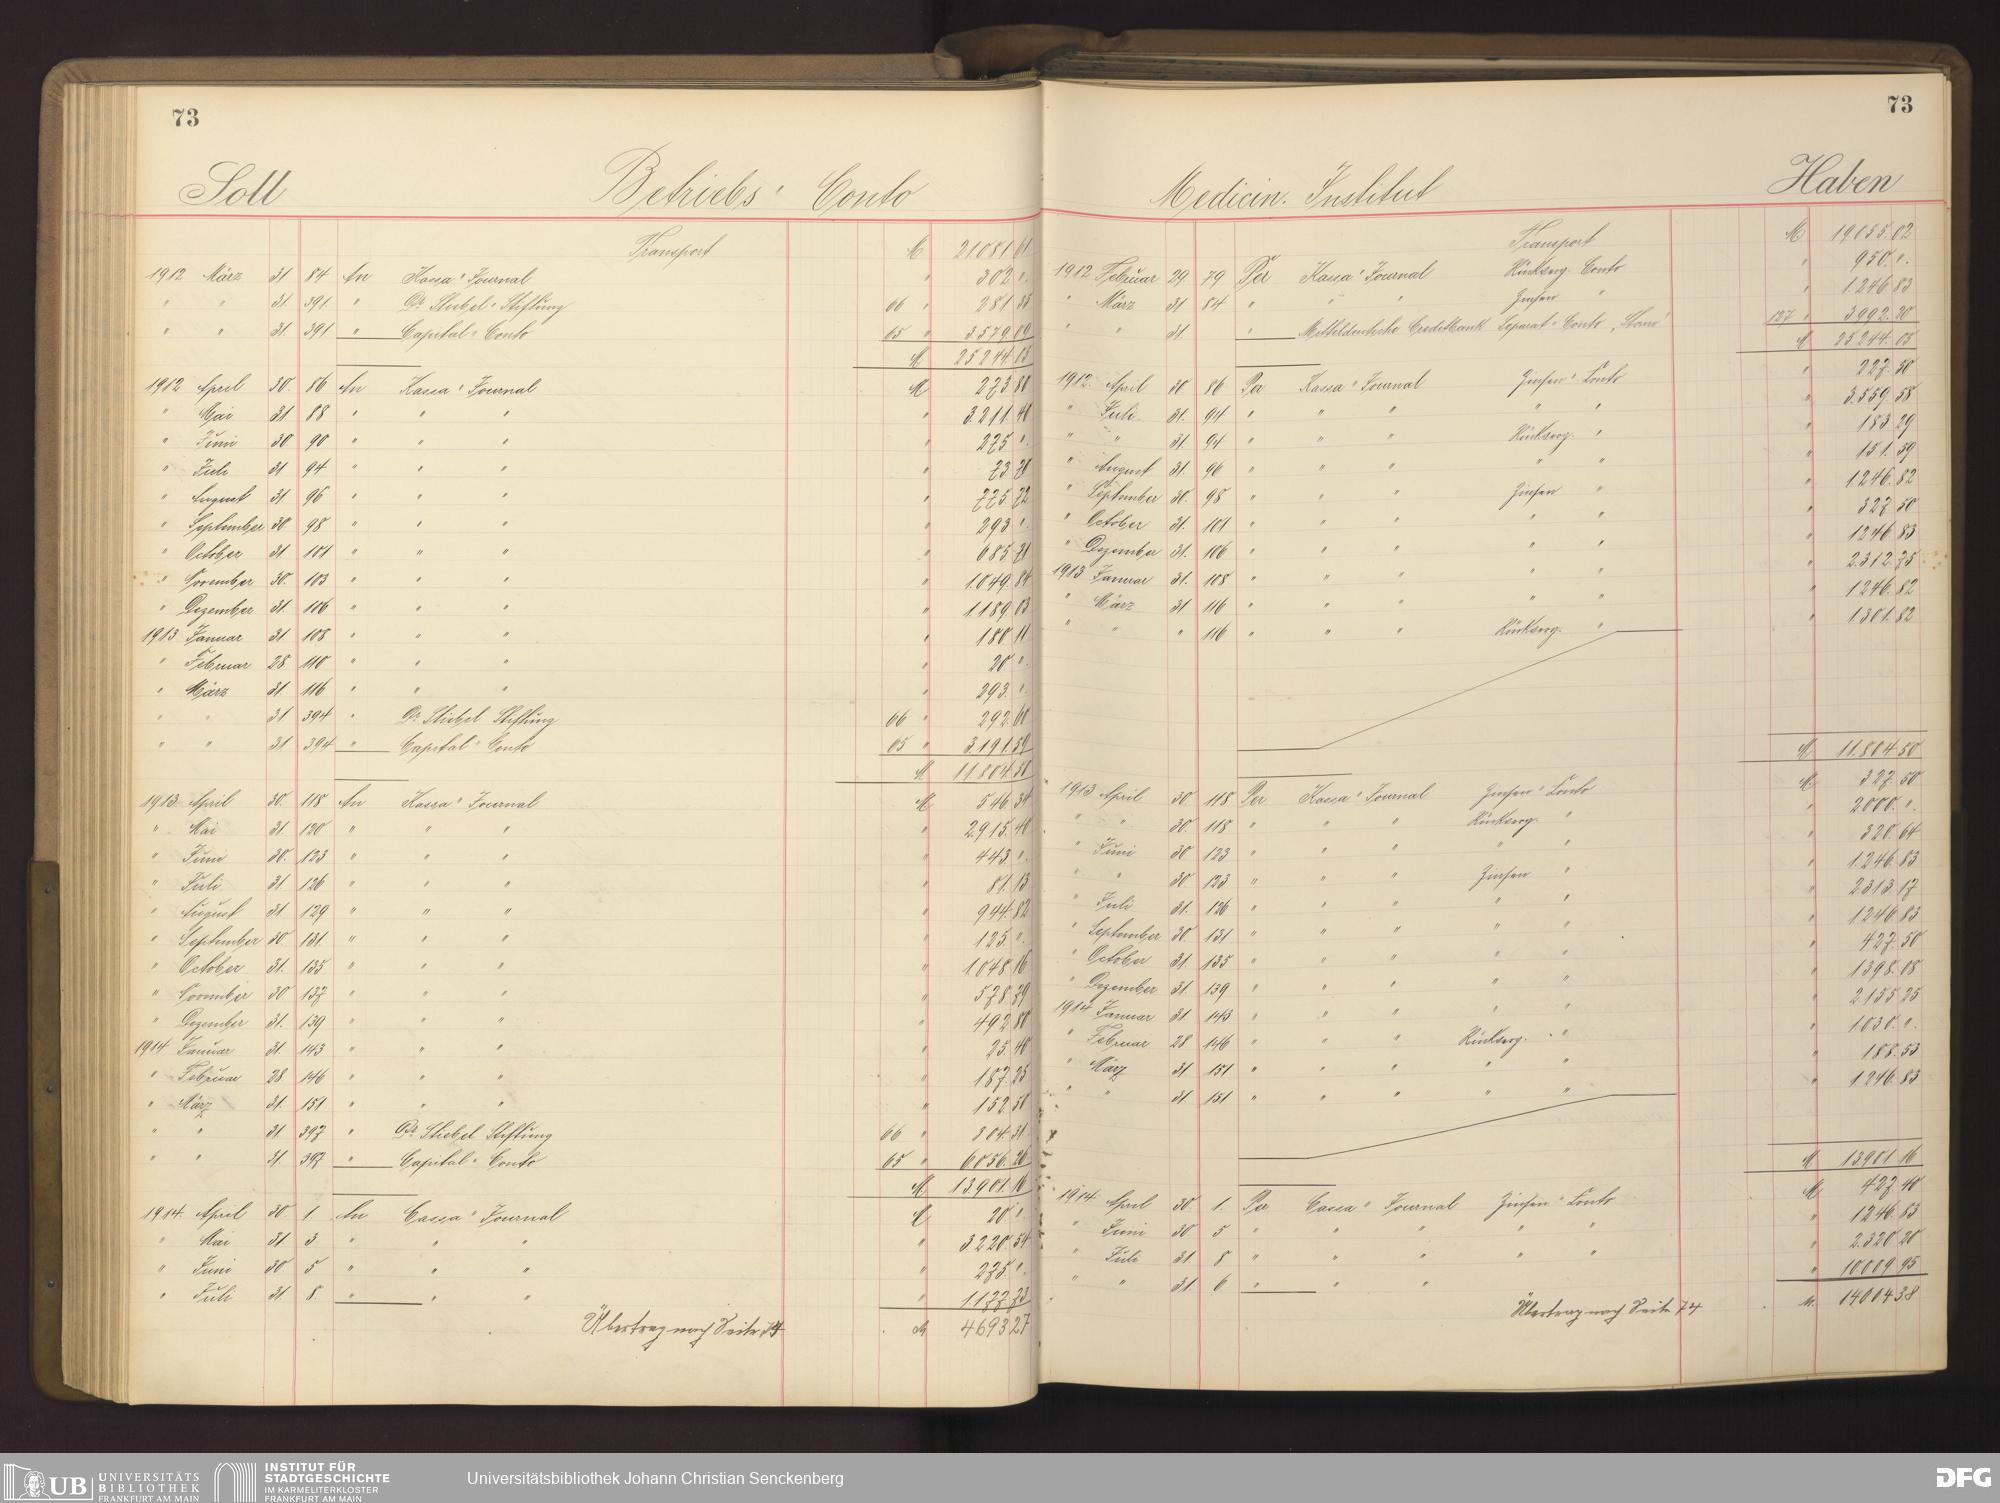 73
Soll Betriebs' Conto
Transport M 21081 61
1912 März 31 84 An Kassa' Journal " 302 ".
" " 31. 391 " Dr. Stiebel' Stiftung 66 " 281 35
" " 31 391 " Capital' Conto 65 " 3579 09
M 25244 05
1912 April 30. 86 An Kassa' Journal M 273 80
" Mai 31 88 " " " " 3.211. 40
" Juni 30 90 " " " " 275 ".
" Juli 31 94 " " " " 73. 70
" August 31 96 " " " " 775. 72
" September 30 98 " " " " 293 ".
" October 31 101 " " " " 685. 71
" November 30. 103 " " " " 1.049. 84
" Dezember 31. 106 " " " " 1189 03
1913 Januar 31 108 " " " " 180 11
" Februar 28 110 " " " " 20 ".
" März 31. 116 " " " " 293. ".
" " 31 394 " Dr. Stiebel Stiftung 66 " 292. 60
" " 31 394 " Capital' Conto 65 " 3.191. 59
M 11804. 50
1913 April 30. 118 An Kassa' Journal M 546. 34
" Mai 31. 120 " " " " 2.915. 40
" Juni 30. 123 " " " " 443. ".
" Juli 31 126 " " " " 81. 13
" August 31 129 " " " " 944. 82
" September 30. 131 " " " " 125. ".
" October 31. 135 " " " " 1.048. 16
" November 30. 137 " " " " 578. 79
" Dezember 31. 139 " " " " 492. 80
1914 Januar 31. 143 " " " " 25. 40
" Februar 28 146 " " " " 187. 25
" März 31. 151 " " " " 152. 50
" " 31. 397 " Dr. Stiebel Stiftung 66 " 304. 31
" " 31. 397 " Capital' Conto 65 " 6056. 26
M 13.901. 16
1914 April 30 1. An Cassa' Journal M 20 ".
" Mai 31 3 " " " " 3220. 54
" Juni 30 5 " " " " 275. ".
" Juli 31. 8 " " " " 1.177. 73
Übertrag nach Seite 74 M 4693 27
73
Medicin. Institut Haben
Transport M 19055. 02
1912 Februar 29. 79 Per Kassa' Journal Rückverg. Conto " 950. ".
" März 31 84 " " " Zinsen " " 1.246 83
" " 31. " Mitteldeutsche Creditbank Separat' Conto „Storno" 127 " 3992. 20
M 25244. 05
1912 April 30 86 Per Kassa' Journal Zinsen' Conto " 227. 50
" Juli 31. 94 " " " " " " 3.559. 58
" " 31. 94 " " " Rückverg. " " 183. 29
" August 31. 96 " " " " " " 151. 59
" September 30. 98 " " " Zinsen " " 1.246. 82
" October 31. 101 " " " " " " 327. 50
" Dezember 31. 106 " " " " " " 1246. 83
1913 Januar 31. 108 " " " " " " 2.312. 75
" März 31 116 " " " " " " 1246. 82
" " " 116 " " " Rückverg. " " 1301. 82
M 11.804. 50
1913 April 30. 118 Per Kassa' Journal Zinsen' Conto M 327. 50
" " 30. 118 " " " Rückverg. " " 2000. ".
" Juni 30 123 " " " " " " 320. 64
" " 30 123 " " " Zinsen " " 1.246. 83
" Juli 31. 126 " " " " " " 2.313. 17
" September 30. 131 " " " " " " 1.246. 83
" October 31. 135 " " " " " " 427. 50
" Dezember 31. 139 " " " " " " 1398. 08
1914 Januar 31 143 " " " " " " 2.155. 25
" Februar 28 146 " " " Rückverg. " " 1030. ".
" März 31 151 " " " " " " 188. 53
" " 31 151 " " " " " " 1.246. 83
M 13901. 16
1914 April 30 1. Per Cassa' Journal Zinsen' Conto M 427. 40
" Juni 30 5 " " " " " " 1.246. 83
" Juli 31 8 " " " " " " 2.320. 20
" " 31. 6 " " " " 10.009. 95
Übertrag nach Seite 74 M. 14004.38
UB UNIVERSITÄTS
BIBLIOTHEK
FRANKFURT AM MAIN
INSTITUT FÜR
STADTGESCHICHTE
IM KARMELITERKLOSTER
FRANKFURT AM MAIN
Universitätsbibliothek Johann Christian Senckenberg
DFG